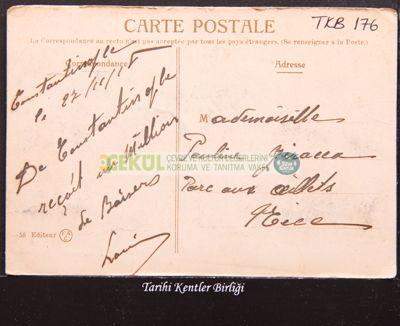 CARTE POSTALE
TKB 176
La Correspondance au recto n'est pas acceptée par tous les pays étrangers. (Se renseigner à la Poste.)
Correspondance
Adresse
Constantinople
le 27/11/18
De Constantinople
reçoit un Million
de Baisers
Louis
58 Editeur
Mademoiselle
Pauline
Parc aux œillets
Nice
ÇEKÜL
ÇEVRE VE KÜLTÜR DEĞERLERİNİ
KORUMA VE TANITMA VAKFI
Tarihi Kentler Birliği